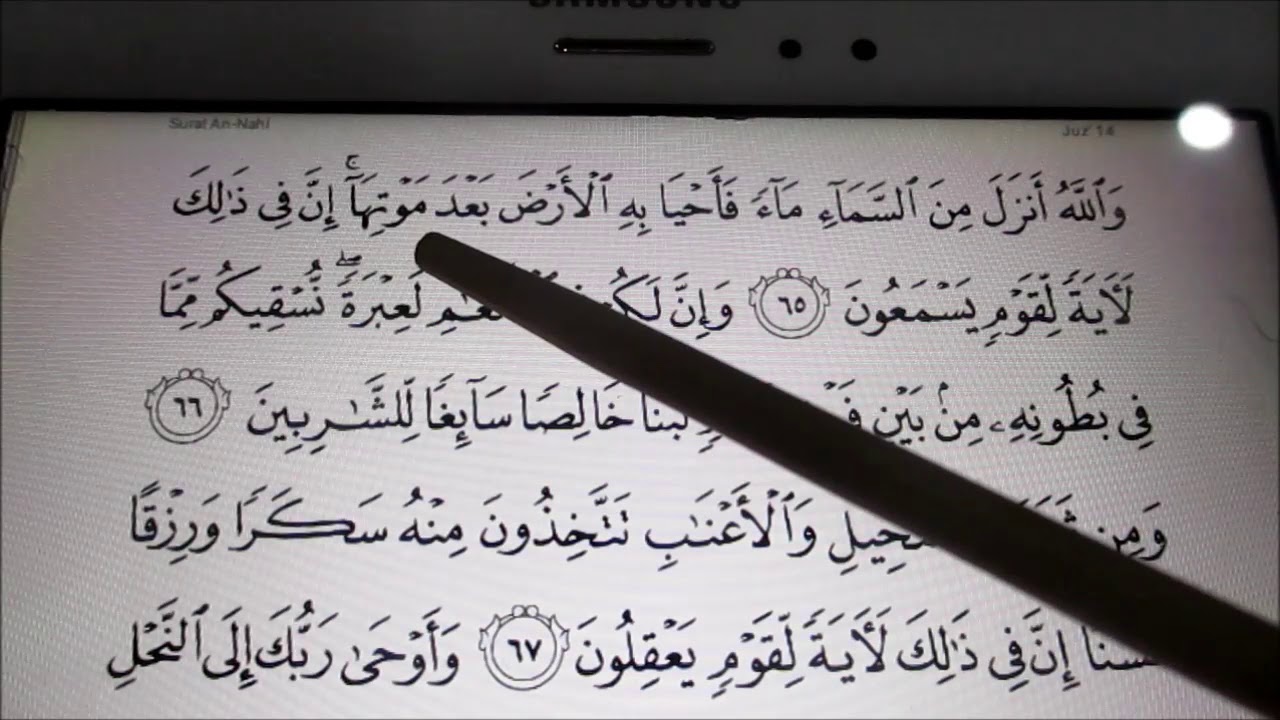 SAMSUNG
Surat An-Nahl
Juz 14
وَٱللَّهُ أَنزَلَ مِنَ ٱلسَّمَآءِ مَآءً فَأَحْيَا بِهِ ٱلْأَرْضَ بَعْدَ مَوْتِهَآ ۚ إِنَّ فِى ذَٰلِكَ
لَـَٔايَةً لِّقَوْمٍ يَسْمَعُونَ ٦٥ وَإِنَّ لَكُمْ لَعِبْرَةً ۖ نُّسْقِيكُم مِّمَّا
فِى بُطُونِهِۦ مِنۢ بَيْنِ لَّبَنًا خَالِصًا سَآئِغًا لِّلشَّـٰرِبِينَ ٦٦
وَمِن وَٱلْأَعْنَـٰبِ تَتَّخِذُونَ مِنْهُ سَكَرًا وَرِزْقًا
حَسَنًا إِنَّ فِى ذَٰلِكَ لَـَٔايَةً لِّقَوْمٍ يَعْقِلُونَ ٦٧ وَأَوْحَىٰ رَبُّكَ إِلَى ٱلنَّحْلِ